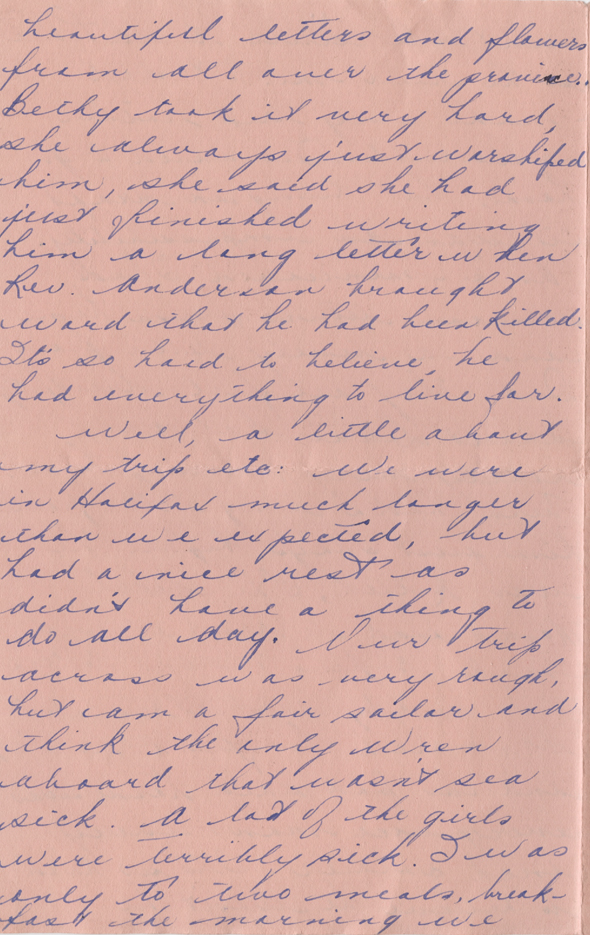 beautiful letters and flowers
from all over the province.
Bethy took it very hard,
she always just worshiped
him, she said she had
just finished writing
him a long letter when
Rev. Anderson brought
word that he had been killed.
It's so hard to believe, he
had everything to live for.
Well, a little about
my trip etc: We were
in Halifax much longer
than we expected, but
had a nice rest as
didn't have a thing to
do all day. Our trip
across was very rough,
but am a fair sailor and
think the only Wren
aboard that wasn't sea
sick. A lot of the girls
were terribly sick. I was
only to two meals, break-
fast the morning we